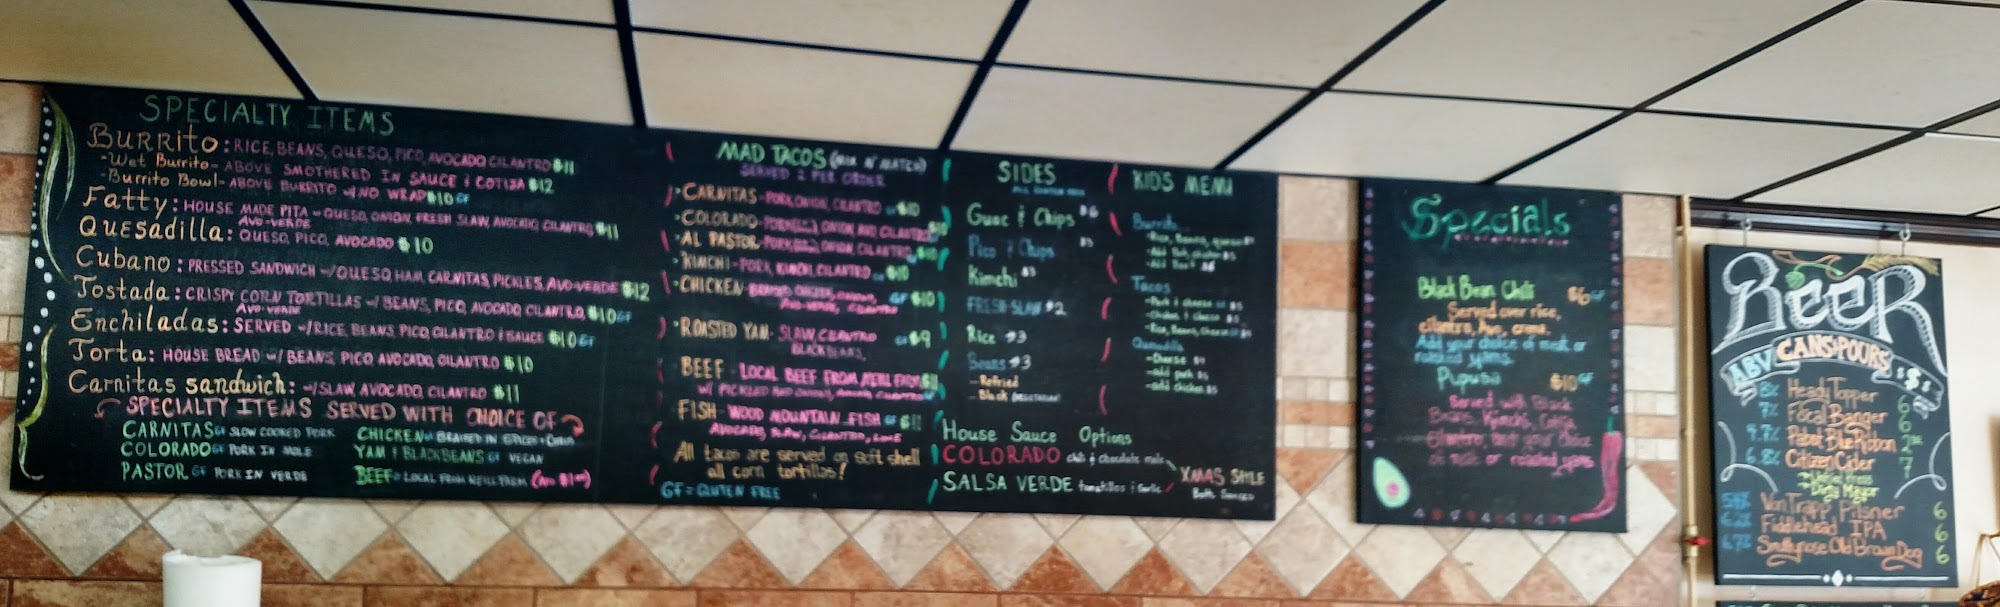 SPECIALTY ITEMS
BURRITO: RICE, BEANS, QUESO, PICO, AVOCADO, CILANTRO $11
-Wet Burrito- ABOVE SMOTHERED IN SAUCE & COTIJA $12
-Burrito Bowl- ABOVE BURRITO w/ NO WRAP $10 GF
Fatty: HOUSE MADE PITA w/ QUESO, ONION, FRESH SLAW, AVOCADO, CILANTRO, $11
AVO-VERDE
QUESADILLA: QUESO, PICO, AVOCADO $10
Cubano: PRESSED SANDWICH w/ QUESO, HAM, CARNITAS, PICKLES, AVO-VERDE $12
Tostada: CRISPY CORN TORTILLAS w/ BEANS, PICO, AVOCADO, CILANTRO, $10 GF
AVO-VERDE
Enchiladas: SERVED w/ RICE, BEANS, PICO, CILANTRO & SAUCE $10 GF
Torta: HOUSE BREAD w/ BEANS, PICO, AVOCADO, CILANTRO $10
Carnitas sandwich: w/ SLAW, AVOCADO, CILANTRO $11
SPECIALTY ITEMS SERVED WITH CHOICE OF
CARNITAS GF SLOW COOKED PORK
COLORADO GF PORK IN MOLE
PASTOR GF PORK IN VERDE
CHICKEN GF BRAISED IN
YAM & BLACKBEANS GF VEGAN
BEEF LOCAL FROM NEILL FARM (ADD $1.00)
MAD TACOS (MIX N' MATCH)
SERVED 2 PER ORDER
CARNITAS - PORK, ONION, CILANTRO GF $10
COLORADO - PORK, ONION AND CILANTRO $10
AL PASTOR - PORK, ONION, CILANTRO $10
KIMCHI - PORK, KIMCHI, CILANTRO $10
CHICKEN - BRAISED CHICKEN, GF $10
AVO-VERDE, CILANTRO
ROASTED YAM - SLAW, CILANTRO GF $9
BLACK BEANS,
BEEF - LOCAL BEEF FROM NEILL FARM $11
W/ PICKLED RED ONION,
FISH - WOOD MOUNTAIN FISH GF $11
AVOCADO, SLAW, CILANTRO, LIME
All tacos are served on soft shell
all corn tortillas!
GF = GLUTEN FREE
SIDES
Guac & Chips $6
Pico & Chips $5
Kimchi $3
FRESH SLAW $2
Rice $3
Beans $3
- Refried
- Black
House Sauce Options
COLORADO chili & chocolate mole
SALSA VERDE tomatillos & garlic
XMAS STYLE
Both Sauces
KIDS MENU
Burrito
- Rice, Beans, queso
Tacos
Quesadilla
- Cheese
- add pork
- add chicken
Specials
Black Bean Chili $6 GF
Served over rice,
cilantro, Avo, crema.
Add your choice of meat or
roasted yams.
Pupusa $10 GF
Served with Black
Beans, Kimchi,
Cilantro, and your choice
of meat or roasted yams
BEER
ABV CANS & POURS $
8% Heady Topper 6
7% Focal Banger 6
4.7% Pabst Blue Ribbon
6.8% Citizen Cider 7
- Unified Press
- Dirty Mayor
5.4% Von Trapp Pilsner 6
6.2% Fiddlehead IPA 6
6.7% Smuttynose Old Brown Dog 6